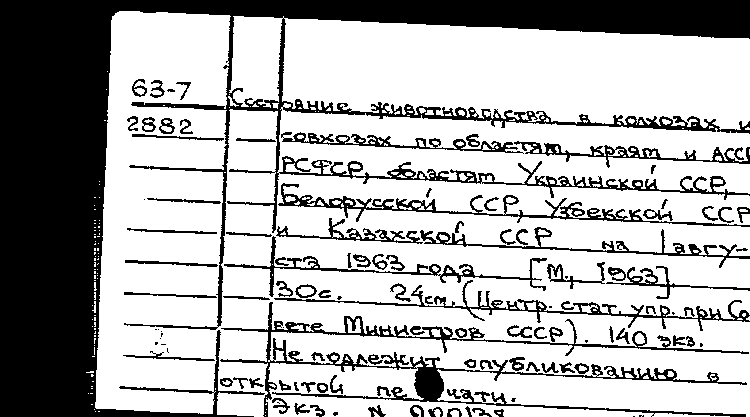 63-7 Состояние животноводства в колхозах и
2882 совхозах по областям, краям и АССР
РСФСР, областям Украинской ССР,
Белорусской ССР, Узбекской ССР
и Казахской ССР на 1 авгу-
ста 1963 года. [М., 1963]
30с. 24см. (Центр. стат. упр. при Со
вете Министров СССР). 140 экз.
Не подлежит опубликованию в
открытой печати.
Экз. N 000138